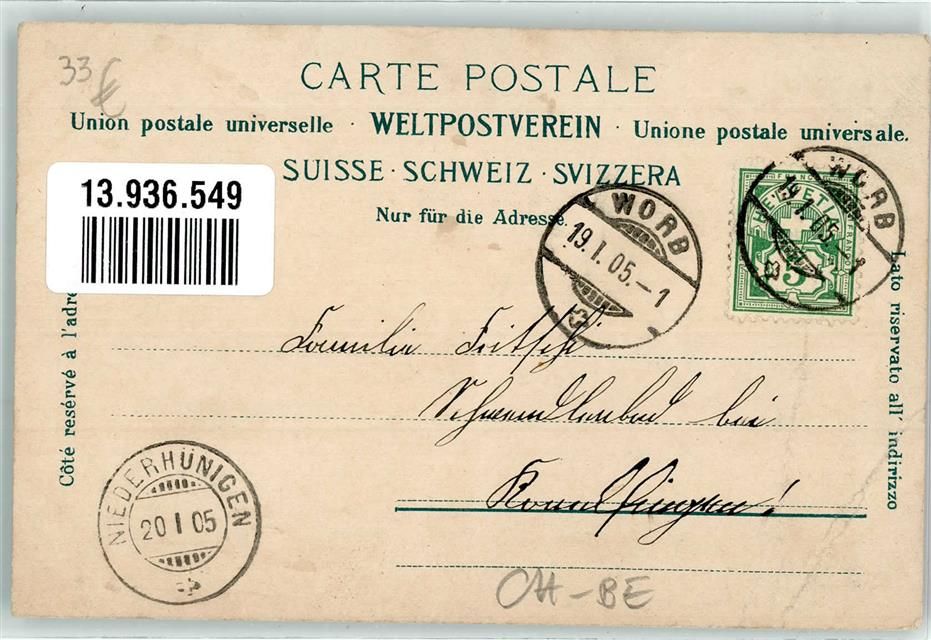 33 €
CARTE POSTALE
Union postale universelle · WELTPOSTVEREIN · Unione postale universale.
SUISSE · SCHWEIZ · SVIZZERA
Nur für die Adresse.
13.936.549
Côté reservé à l'adre
Lato riservato all' indirizzo
WORB
19.I.05.-1
WORB
19.I.05.-1
FRANCO
HELVETIA
FRANCO
5
Familie Fritschi
Schwendlenbad bei
Konolfingen!
NIEDERHÜNIGEN
20 I 05
CH-BE